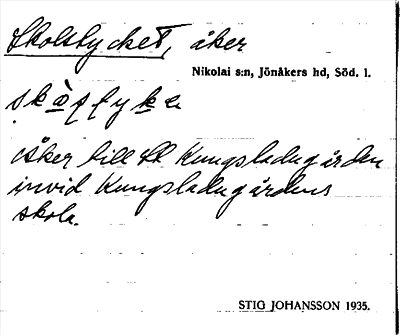 Skolstycket, åker
Nikolai s:n, Jönåkers hd, Söd. l.
åker till Kungsladugården
invid Kungsladugårdens
skola.
STIG JOHANSSON 1935.